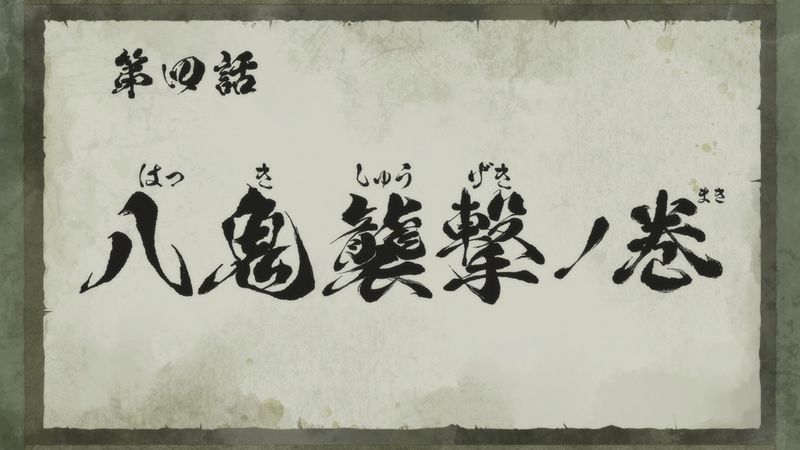 第四話
はつ き しゅう げき まき
八鬼襲撃ノ巻